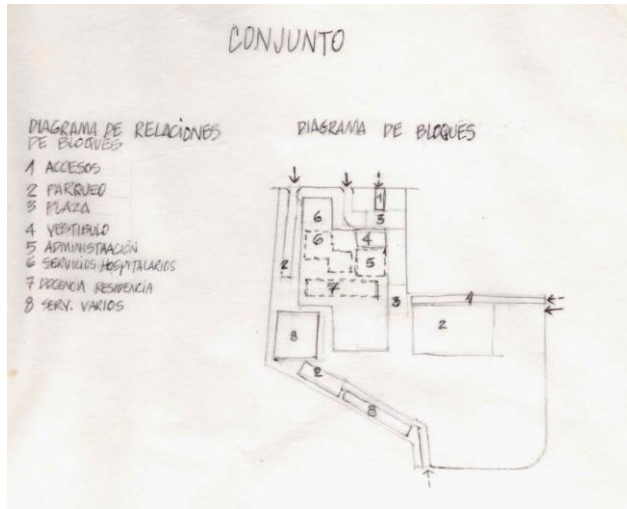 CONJUNTO
DIAGRAMA DE RELACIONES
DE BLOQUES
1 ACCESOS
2 PARQUEO
3 PLAZA
4 VESTIBULO
5 ADMINISTRACIÓN
6 SERVICIOS HOSPITALARIOS
7 DOCENCIA RESIDENCIA
8 SERV. VARIOS
DIAGRAMA DE BLOQUES
1
6
3
6
4
5
2
7
3
1
2
8
2
8